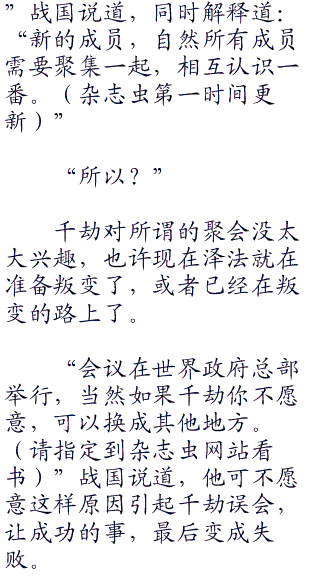 ”战国说道，同时解释道：
“新的成员，自然所有成员
需要聚集一起，相互认识一
番。（杂志虫第一时间更
新）”
“所以？”
千劫对所谓的聚会没太
大兴趣，也许现在泽法就在
准备叛变了，或者已经在叛
变的路上了。
“会议在世界政府总部
举行，当然如果千劫你不愿
意，可以换成其他地方。
（请指定到杂志虫网站看
书）”战国说道，他可不愿
意这样原因引起千劫误会，
让成功的事，最后变成失
败。